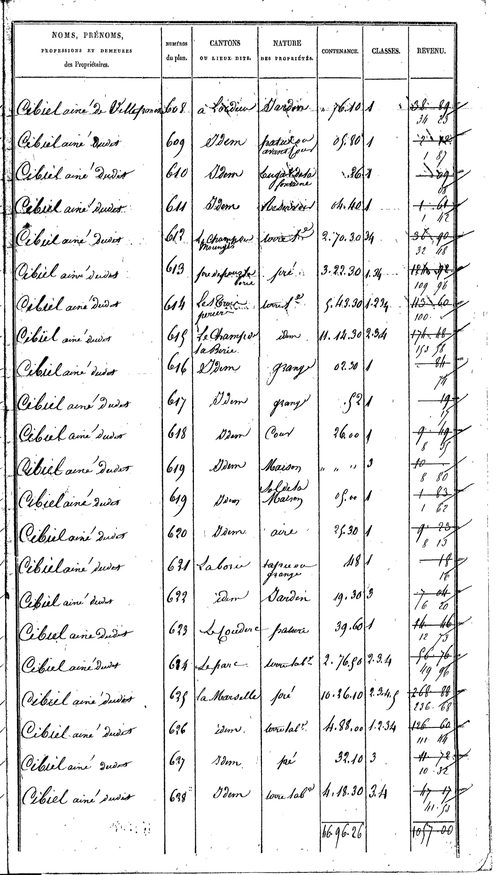 NOMS, PRÉNOMS,
PROFESSIONS ET DEMEURES
des Propriétaires.
NUMÉROS
du plan.
CANTONS
OU LIEUX DITS.
NATURE
DES PROPRIÉTÉS.
CONTENANCE.
CLASSES.
REVENU.
Cibiel ainé de Villefranche 608 à Loudieu Jardin 76.10 1 38 89
34 25
Cibiel ainé dudit 609 Idem 05.80 1
1 87
Cibiel ainé dudit 610 Idem 26 1 09
08
Cibiel ainé dudit 611 Idem 04.40 1 1 61
1 42
Cibiel ainé dudit 612 Le Champ terre 2.70.30 34 37 90
32 68
Cibiel ainé dudit 613 pré 3.22.30 1.34
109 96
Cibiel ainé dudit 614 terre 5.43.30 1.234 113 60
100
Cibiel ainé dudit 615 Le Champ de la Borie idem 11.14.30 2.3.4
152 56
Cibiel ainé dudit 616 Idem grange 02.30 1 84
74
Cibiel ainé dudit 617 Idem grange 52 1 19
Cibiel ainé dudit 618 Idem Cour 26.00 1 9 49
8 35
Cibiel ainé dudit 619 Idem Maison " " " 3 10
8 80
Cibiel ainé dudit 619 Idem Sol de la Maison 05.00 1 1 83
1 62
Cibiel ainé dudit 620 Idem aire 25.30 1 9 23
8 13
Cibiel ainé dudit 621 Laborie grange 48 1 18
16
Cibiel ainé dudit 622 idem Jardin 19.30 3 7 04
6 20
Cibiel ainé dudit 623 Le Couderc pature 39.60 1 14 46
12 73
Cibiel ainé dudit 624 Le parc terre labe 2.76.50 2.3.4 56 76
49 96
Cibiel ainé dudit 625 la Marselle pré 10.26.10 2.3.4.5 268 88
236 68
Cibiel ainé dudit 626 idem terre labe 4.88.00 1.2.34 126 60
111 44
Cibiel ainé dudit 627 Idem pré 32.10 3 11 72
10 32
Cibiel ainé dudit 628 Idem terre labe 4.18.30 3.4 47 17
41 51
46 96.26 1057.00